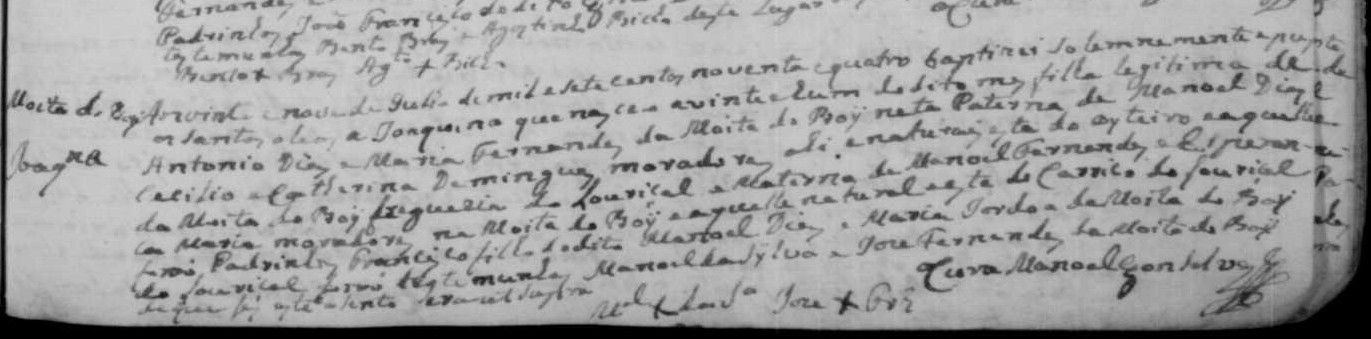 Fernande
Padrinhos José Francisco do dito
testemunhas Bento Braz e Agostinho Bicho deste Lugar
Bento + Braz Agto + Bicho
Moita do Boy Aos vinte e nove de Julho de mil e sete centos noventa e quatro baptizei solemnemente e pus
os santos oleos a Joaquina que nasceo a vinte e hum do dito mes filha legitima de
Joaqna Antonio Dias e Maria Fernandes da Moita do Boy neta Paterna de Manoel Dias
Cecilio e Catherina Domingues moradores ali e naturais esta do oyteiro e aquelle
da Moita do Boy freguezia do Lourical e Materna de Manoel Fernandes e Esperan
ca Maria moradores na Moita do Boy e aquelle natural e esta do Carrico do Lourical
foraõ Padrinhos Francisco filho do dito Manoel Dias e Maria Jordoa da Moita do Boy
do Lourical foraõ testemunhas Manoel da Sylva e Joze Fernandes da Moita do Boy
de que fiz este asento era ut supra O Cura Manoel Gonsalves
Mel + da Sa Joze + Frz